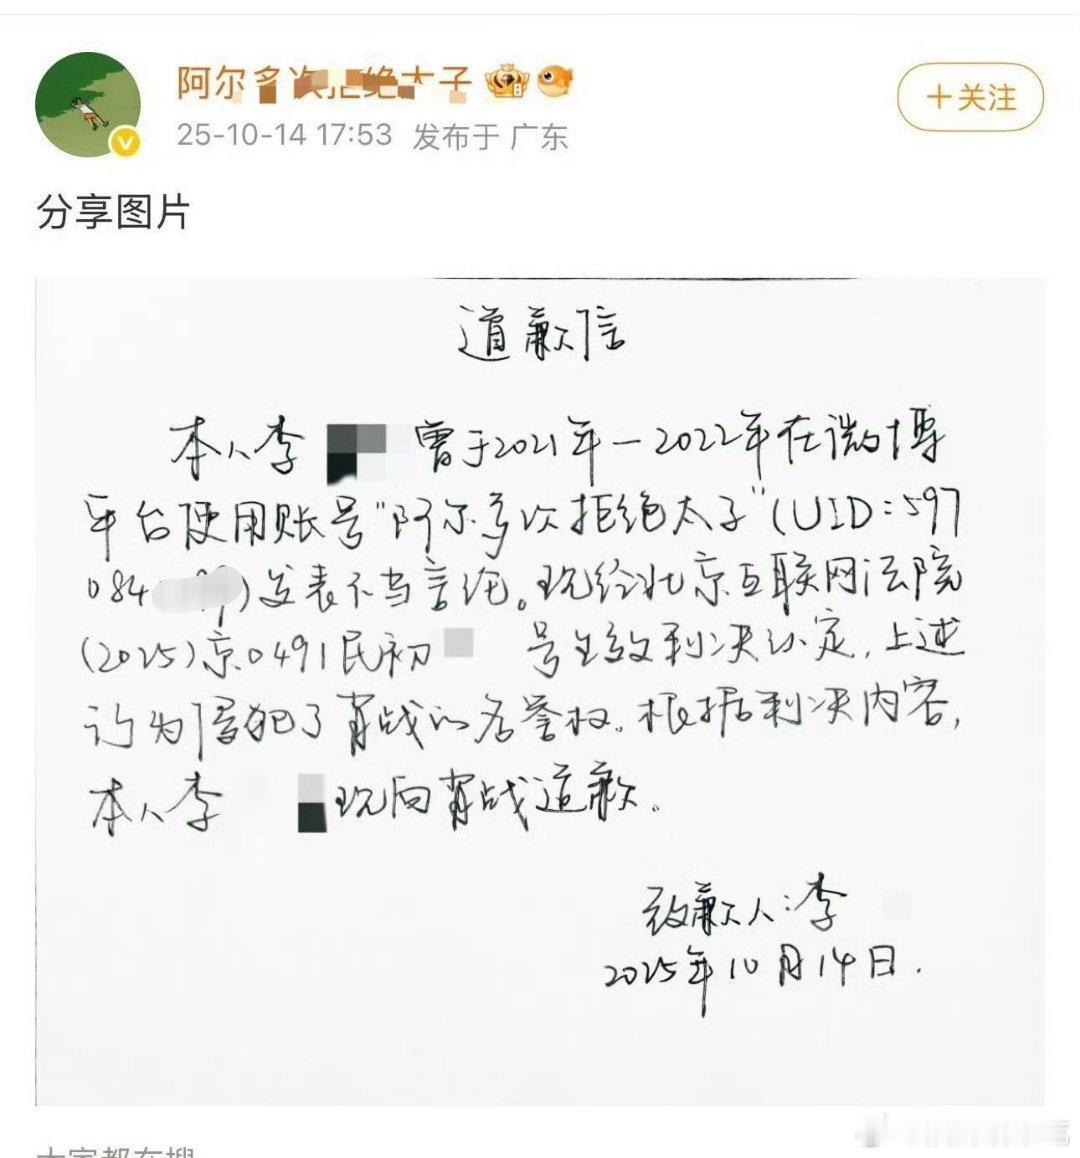 阿尔多次拒绝太子
+关注
25-10-14 17:53 发布于 广东
分享图片
道歉信
本人李 曾于2021年-2022年在微博
平台使用账号"阿尔多次拒绝太子"(UID:597
084 )发表不当言论。现经北京互联网法院
(2025)京0491民初 号生效判决认定,上述
行为侵犯了肖战的名誉权。根据判决内容,
本人李 现向肖战道歉。
致歉人:李
2025年10月14日.
大家都在搜